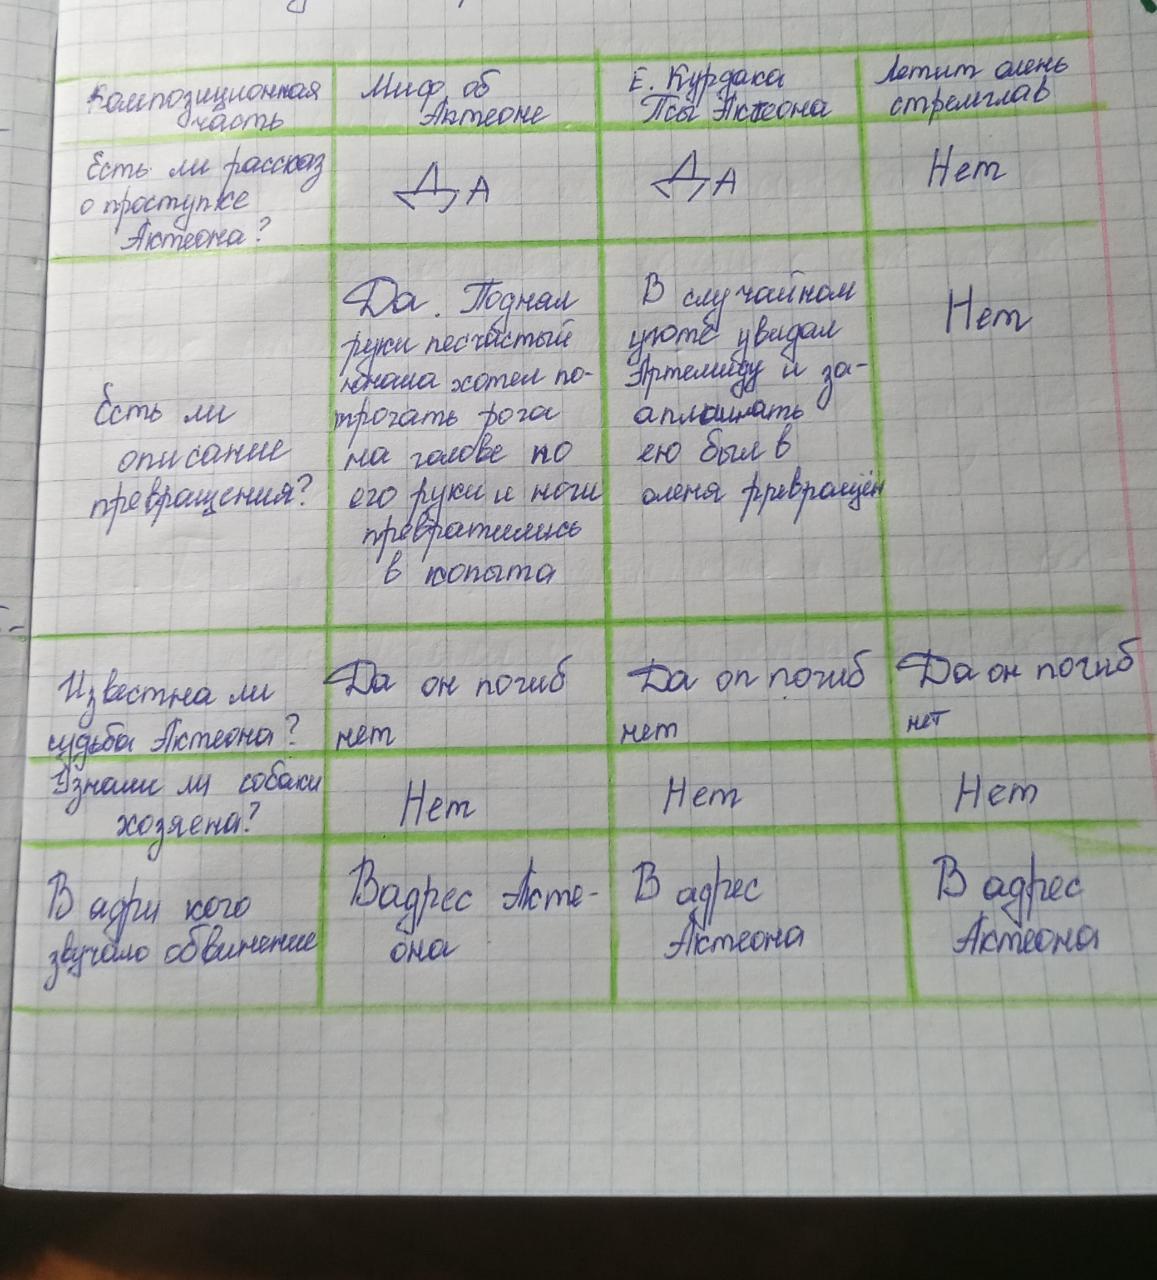 Композиционная
часть
Миф об
Актеоне
Е. Курдака
Псы Актеона
Летит олень
стремглав
Есть ли рассказ
о проступке
Актеона?
ДА
ДА
Нет
Есть ли
описание
превращения?
Да. Поднял
руки песчастый
юноша хотел по-
трогать рога
на голове но
его руки и ноги
превратились
в копыта
В случайном
уюте увидал
Артемиду и за-
ею был в
оленя рревращён
Нет
Известна ли
судьба Актеона?
Да он погиб
нет
Да оп погиб
нет
Да он погиб
нет
Узнали ли собаки
хозяена?
Нет
Нет
Нет
В адри кого
звучало обвинение
Вадрес Акте-
она
В адрес
Актеона
В адрес
Актеона